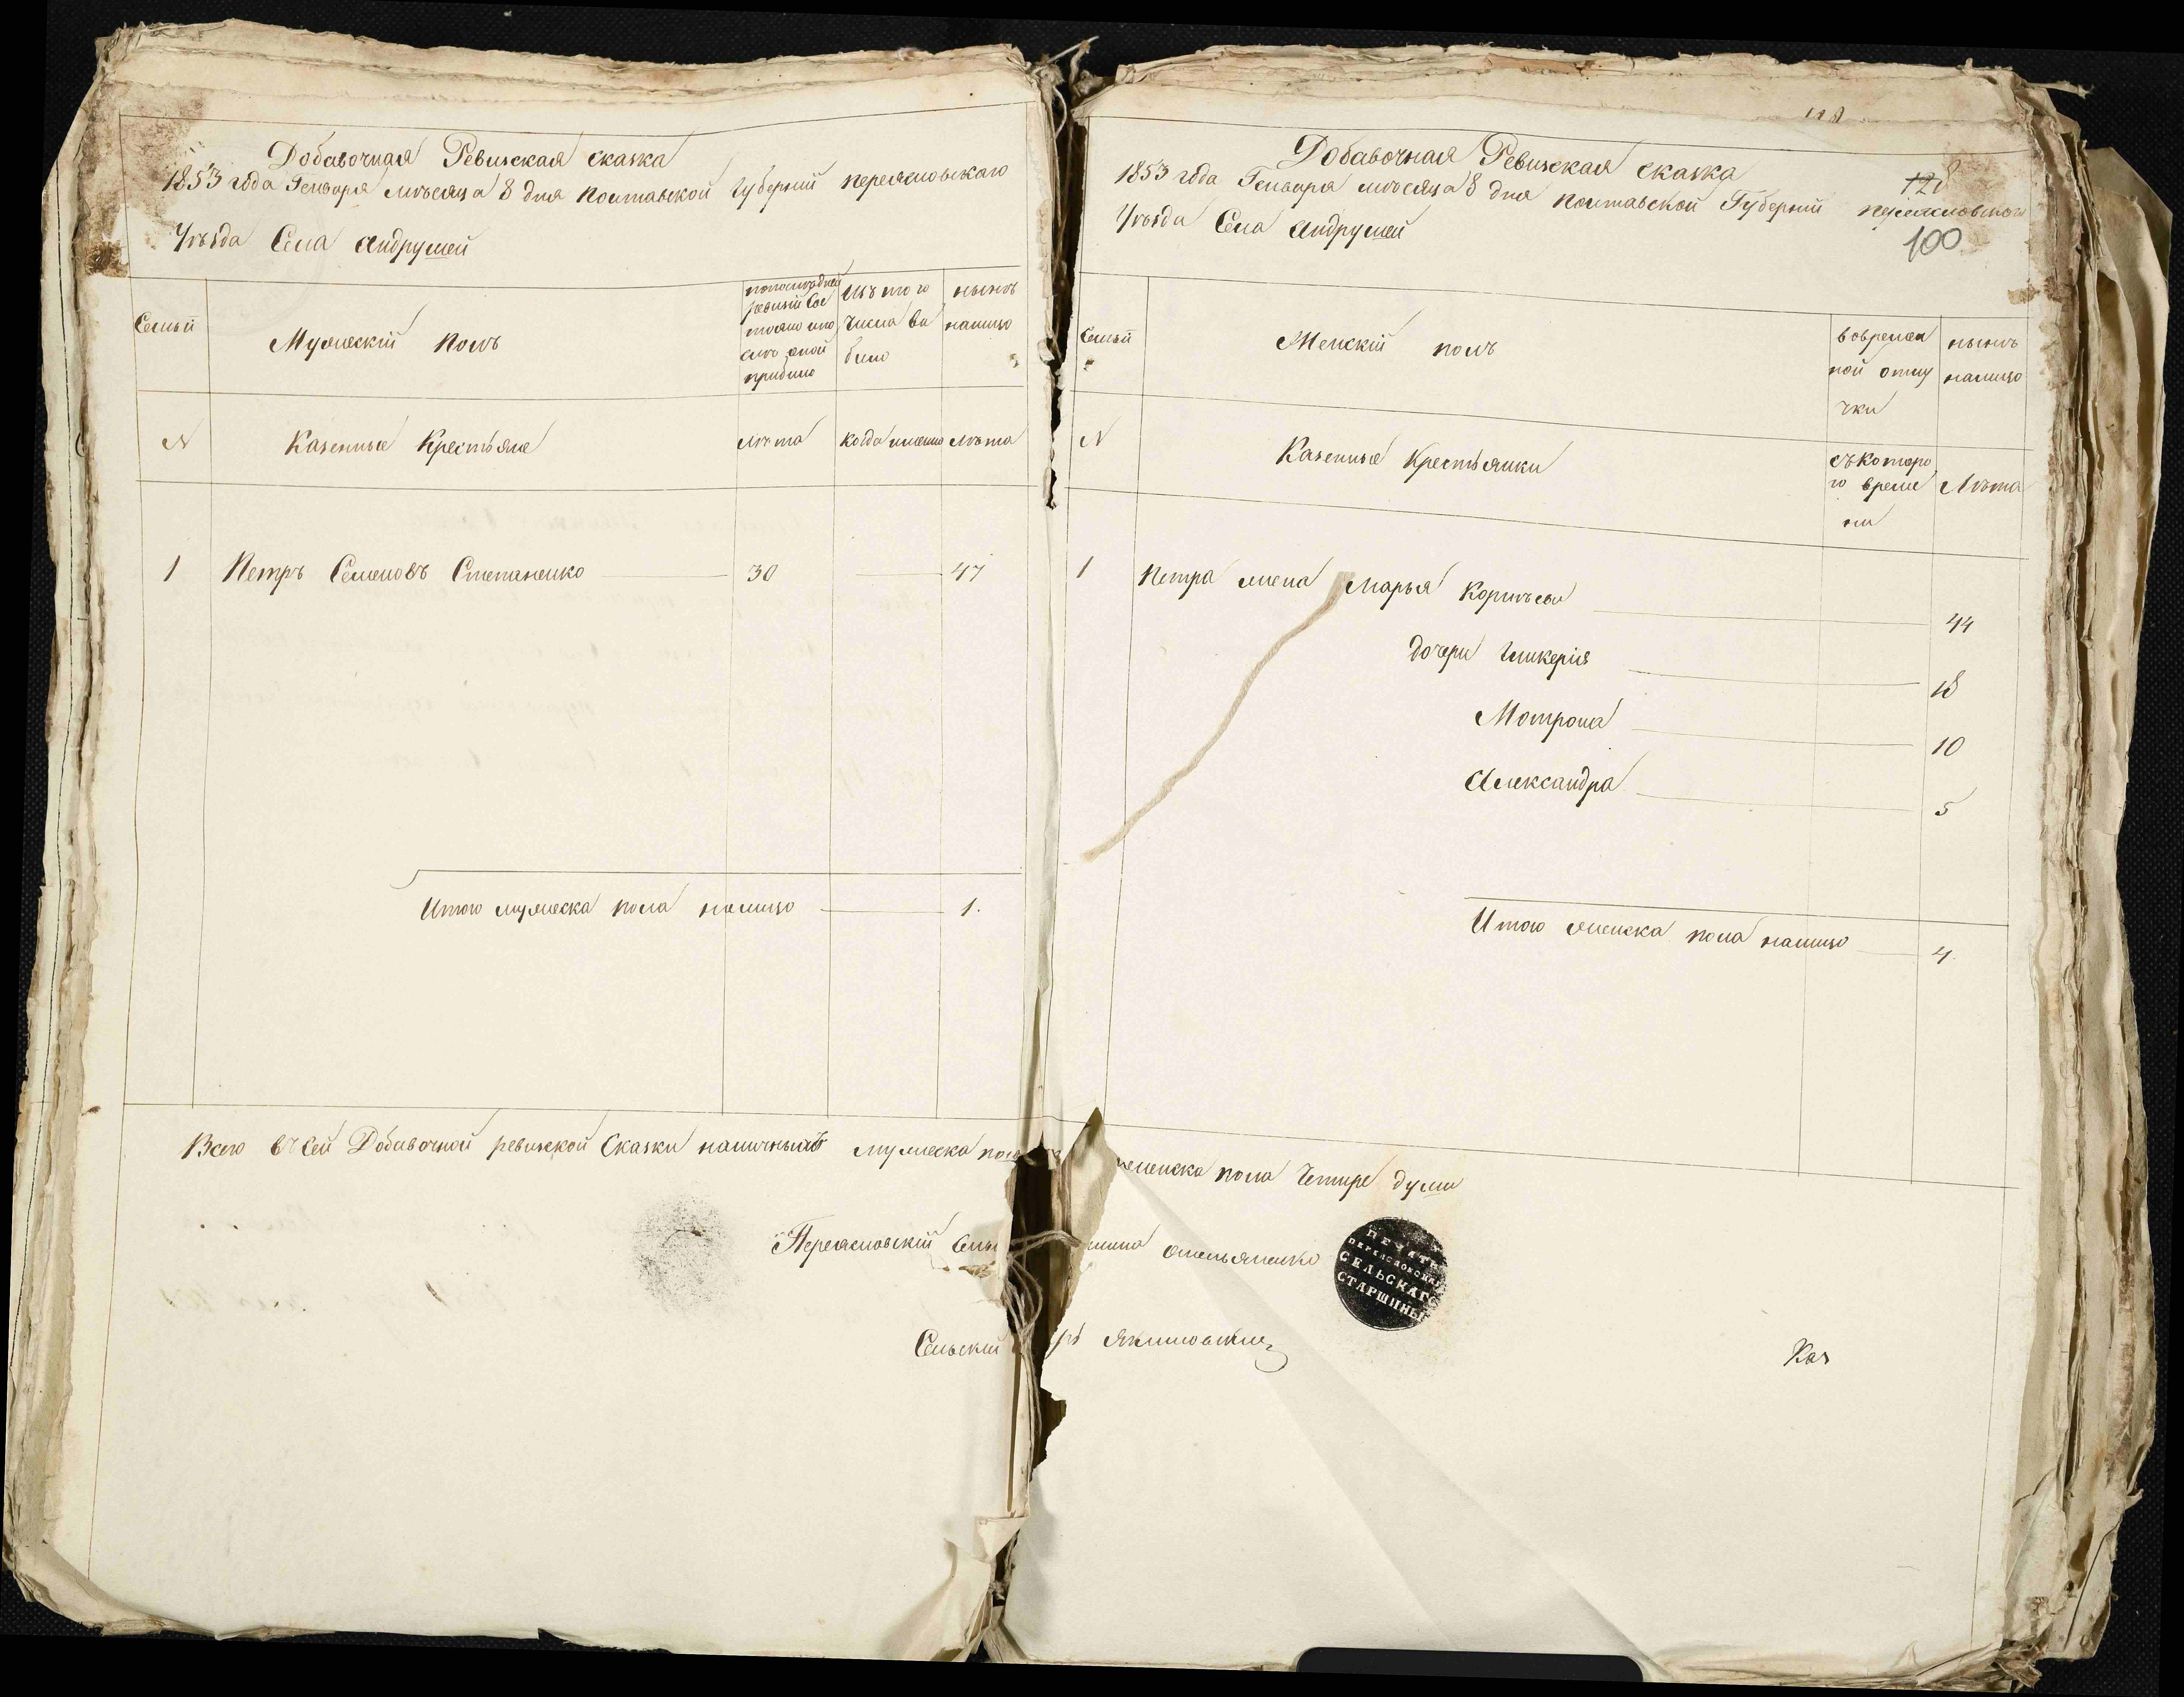 Добавочная Ревизская сказка
1853 года Генваря мѣсяца 8 дня Полтавской губерній переясловскаго
Уѣзда Села Андрушей
Семьи
Мужескій полъ
по последней
ревизіи Сос
тояло и по
слѣ оной
прибыло
Изъ того
числа вы
было
нынѣ
налицо
N
Казенные Крестьяне
лѣта
когда именно
лѣта
1 Петръ Семеновъ Степаненко 30 47
Итого мужеска пола налицо 1.
118
Добавочная Ревизская сказка
128
1853 года Генваря мѣсяца 8 дня полтавской Губерній переясловскаго
Уѣзда Села Андрушей
100
Семьи
Женскій полъ
вовремен
ной отлу
чки
нынѣ
налицо
N
Казенные Крестьянки
съ которо
го време
ни
Лѣта
1 Петра жена Марья Корнѣева 44
дочери Гликерія 18
Мотрона 10
Александра 5
Итого женска пола налицо 4.
Всего въ сей Добавочной ревизской Сказки наличныхъ мужеска пола женска пола Четыре души
Переясловскій Омельяненко
ПЕЧАТЬ
ПЕРЕЯСЛОВСКАГО
СЕЛЬСКАГО
СТАРШИНЫ
Сельскій Якимовскій
Каз